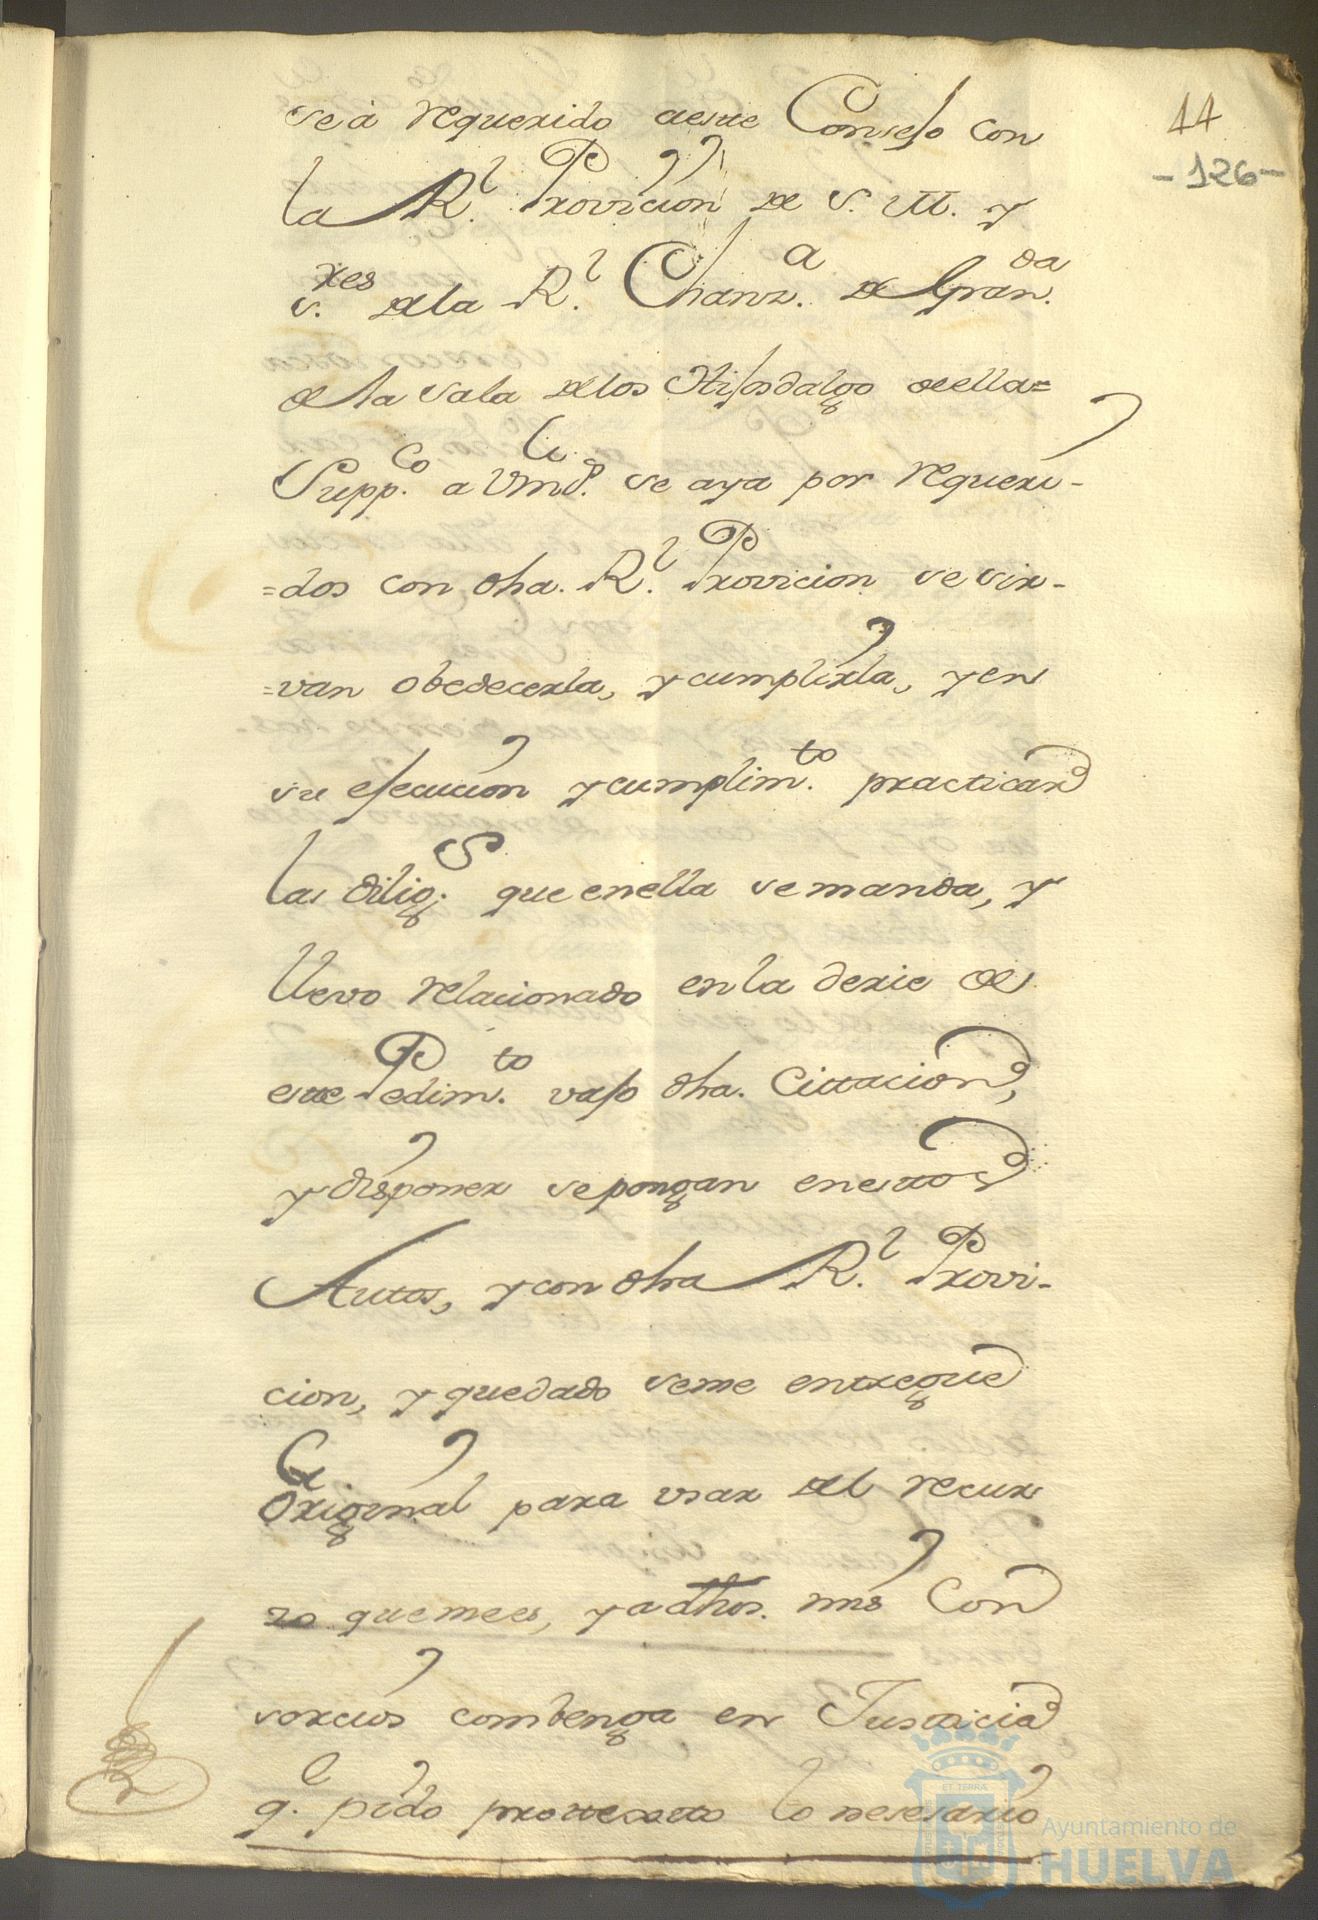 44
-126-
se à requerido aeste Consejo con
la Rl. Provicion de S. M. y
s.res dela Rl. Chanz.a de Gran.da
de la sala delos Hijosdalgo deella=
Supp.co a Vmd. se aya por requeri-
=dos con dha. Rl. Provicion se sir-
=van obedecerla, y cumplirla, y en
su ejecucion y cumplim.to practicar
las dilig.s que enella se manda, y
llevo relacionado en la serie de
este Pedim.to vajo dha. Cittacion,
y disponer se pongan enestos
Autos, y con dha Rl. Provi-
cion, y quedado seme entregue
Original para usar del recur
so que mees, y a dhos. mis Con
sorcios combenga en Justicia
q.e pido prottexto lo nesesario
ET TERRA
Ayuntamiento de
HUELVA